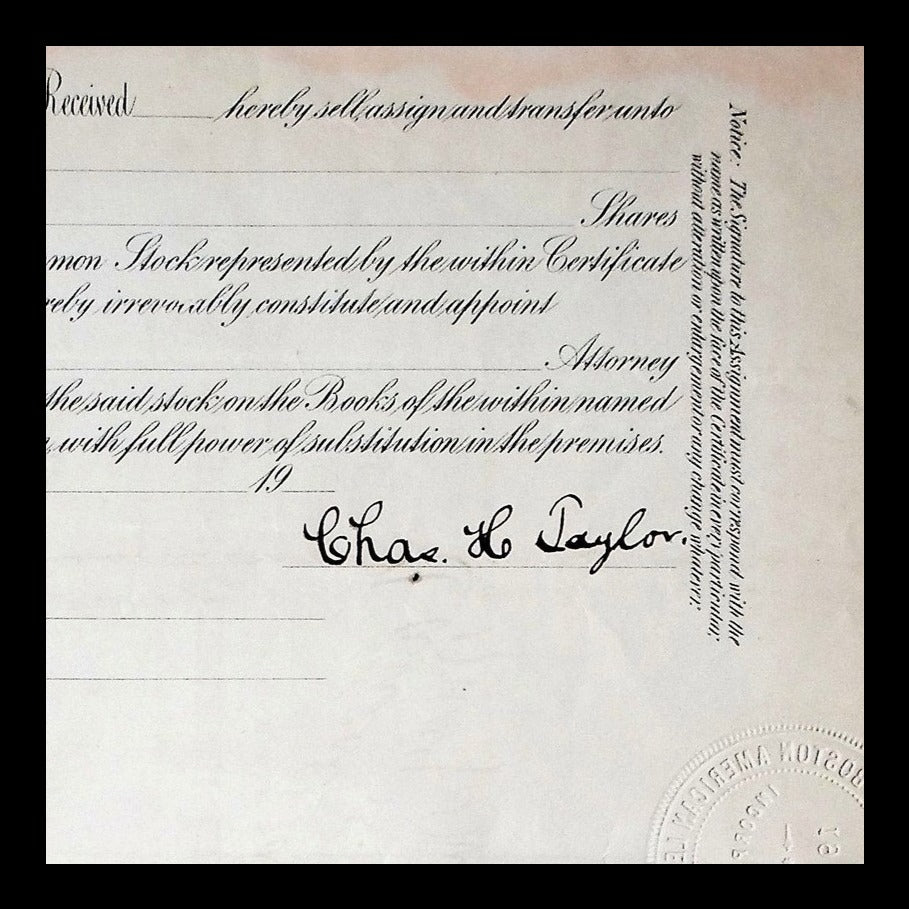 Received hereby sell, assign and transfer unto
Shares
mon Stock represented by the within Certificate
reby irrevocably constitute and appoint
Attorney
the said stock on the Books of the within named
with full power of substitution in the premises.
19
Chas. H Taylor.
Notice: The Signature to this Assignment must correspond with the
name as written upon the face of the Certificate in every particular,
without alteration or enlargement or any change whatever.
BOSTON AMERICAN LE
INCORP